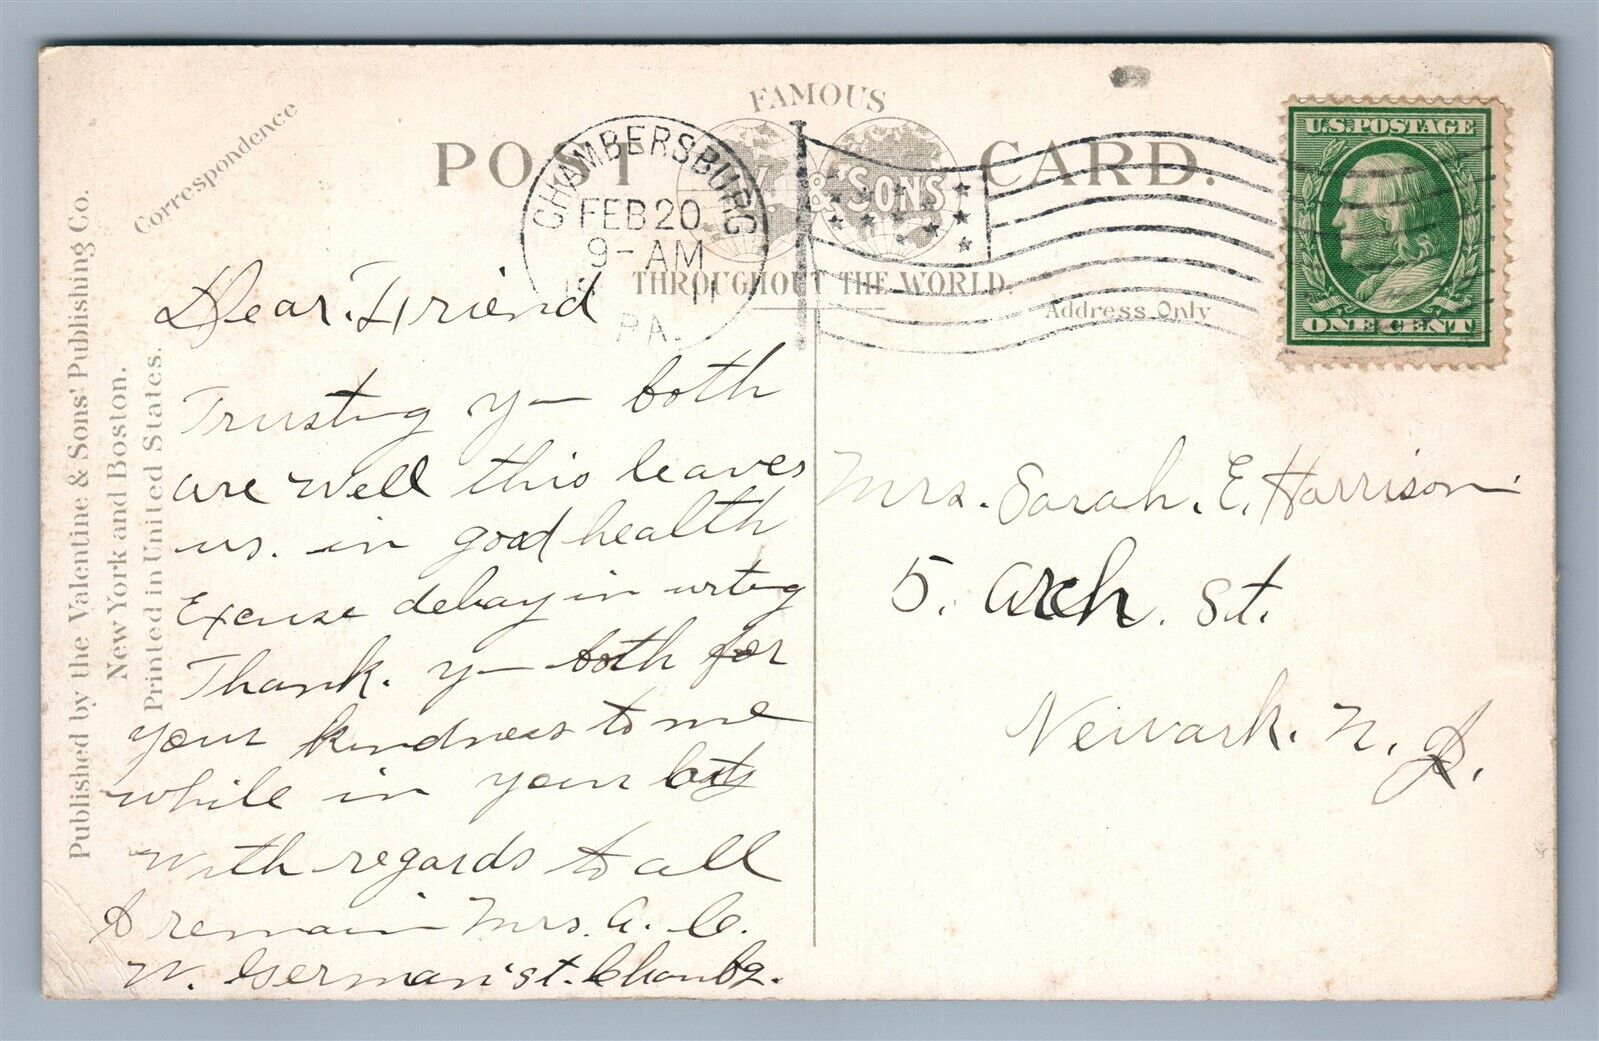 Published by the Valentine & Sons' Publishing Co.
New York and Boston.
Printed in United States.
Correspondence
POST CARD.
FAMOUS
& SONS
THROUGHOUT THE WORLD.
Address Only
CHAMBERSBURG
FEB 20
9-AM
11
PA.
U.S. POSTAGE
ONE CENT
Dear. Friend
Trusting y— both
are well this leaves
us. in good health
Excuse delay in writing
Thank. y— both for
your kindness to me
while in your
With regards to all
I remain Mrs. A. C.
W. German St. Chambg.
Mrs. Sarah. E. Harrison
5. Arch. St.
Newark. N. J.